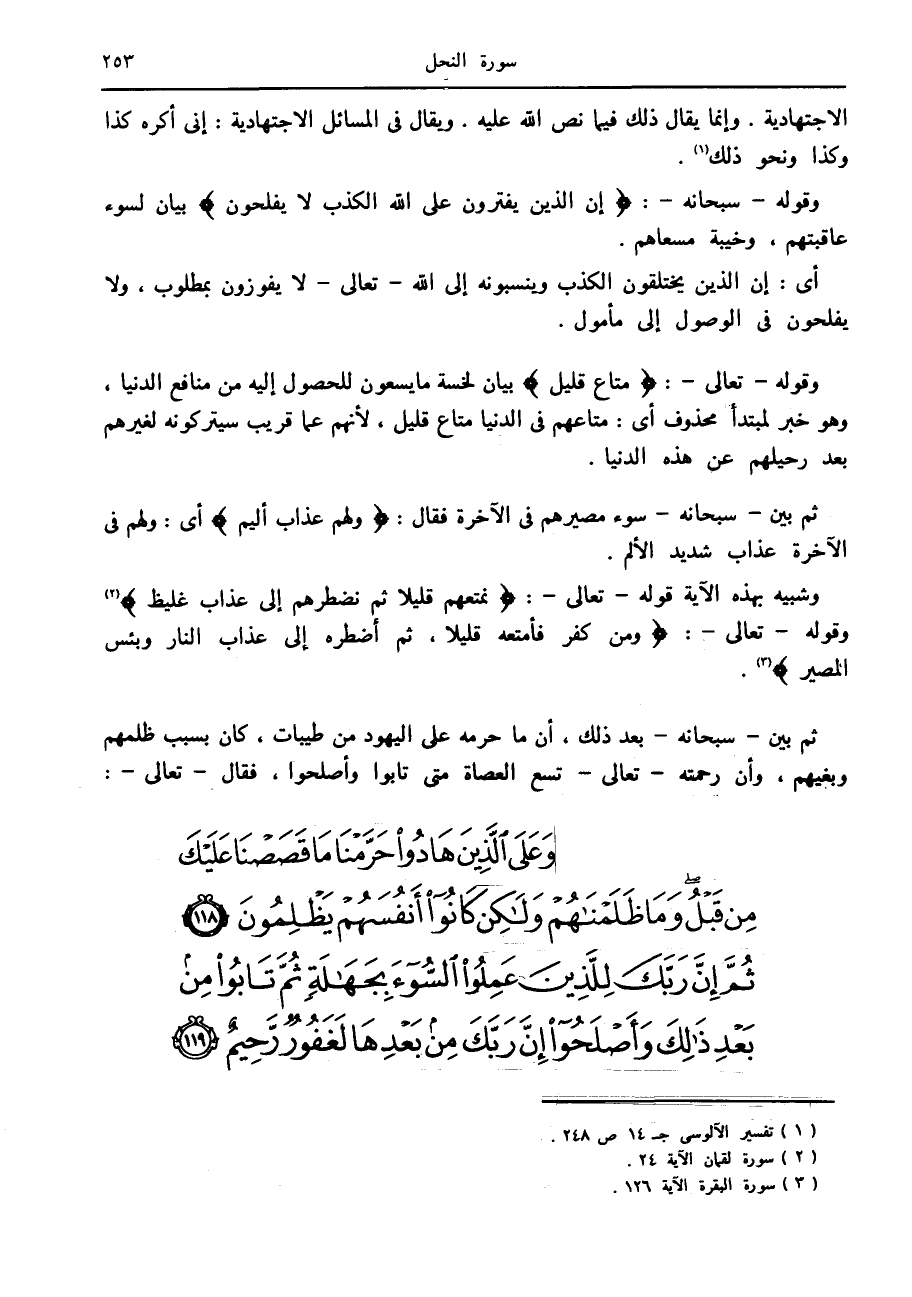 سورة النحل ٢٥٣
الاجتهادية . وإنما يقال ذلك فيما نص الله عليه . ويقال فى المسائل الاجتهادية : إنى أكره كذا
وكذا ونحو ذلك(١) .
وقوله - سبحانه - : ﴿ إن الذين يفترون على الله الكذب لا يفلحون ﴾ بيان لسوء
عاقبتهم ، وخيبة مسعاهم .
أى : إن الذين يختلقون الكذب وينسبونه إلى الله - تعالى - لا يفوزون بمطلوب ، ولا
يفلحون فى الوصول إلى مأمول .
وقوله - تعالى - : ﴿ متاع قليل ﴾ بيان لخسة مايسعون للحصول إليه من منافع الدنيا ،
وهو خبر لمبتدأ محذوف أى : متاعهم فى الدنيا متاع قليل ، لأنهم عما قريب سيتركونه لغيرهم
بعد رحيلهم عن هذه الدنيا .
ثم بين - سبحانه - سوء مصيرهم فى الآخرة فقال : ﴿ ولهم عذاب أليم ﴾ أى : ولهم فى
الآخرة عذاب شديد الألم .
وشبيه بهذه الآية قوله - تعالى - : ﴿ نمتعهم قليلا ثم نضطرهم إلى عذاب غليظ ﴾(٢)
وقوله - تعالى - : ﴿ ومن كفر فأمتعه قليلا ، ثم أضطره إلى عذاب النار وبئس
المصير ﴾(٣) .
ثم بين - سبحانه - بعد ذلك ، أن ما حرمه على اليهود من طيبات ، كان بسبب ظلمهم
وبغيهم ، وأن رحمته - تعالى - تسع العصاة متى تابوا وأصلحوا ، فقال - تعالى - :
وَعَلَى ٱلَّذِينَ هَادُوا۟ حَرَّمْنَا مَا قَصَصْنَا عَلَيْكَ
مِن قَبْلُ ۖ وَمَا ظَلَمْنَٰهُمْ وَلَٰكِن كَانُوٓا۟ أَنفُسَهُمْ يَظْلِمُونَ ١١٨
ثُمَّ إِنَّ رَبَّكَ لِلَّذِينَ عَمِلُوا۟ ٱلسُّوٓءَ بِجَهَٰلَةٍ ثُمَّ تَابُوا۟ مِنۢ
بَعْدِ ذَٰلِكَ وَأَصْلَحُوٓا۟ إِنَّ رَبَّكَ مِنۢ بَعْدِهَا لَغَفُورٌ رَّحِيمٌ ١١٩
( ١ ) تفسير الآلوسى جـ ١٤ ص ٢٤٨ .
( ٢ ) سورة لقمان الآية ٢٤ .
( ٣ ) سورة البقرة الآية ١٢٦ .